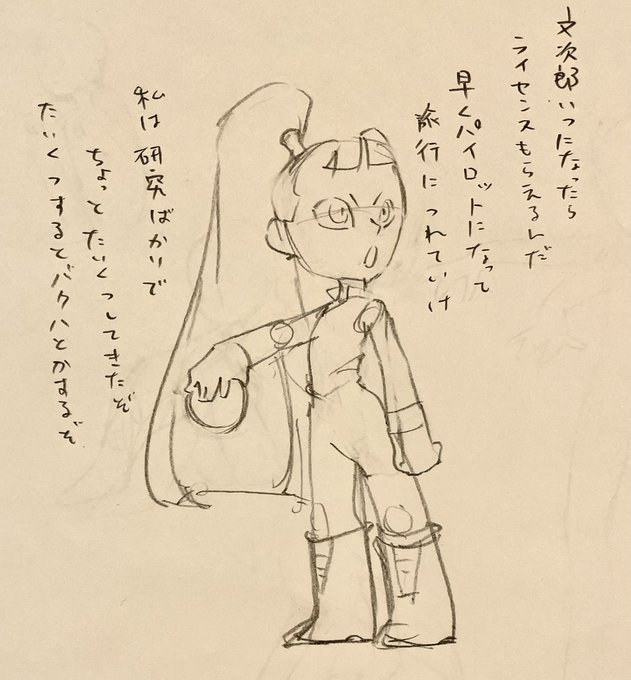 文次郎いつになったら
ライセンスもらえるんだ
早くパイロットになって
旅行につれていけ
私は研究ばかりで
ちょっとたいくつしてきたぞ
たいくつするとバクハとかするぞ